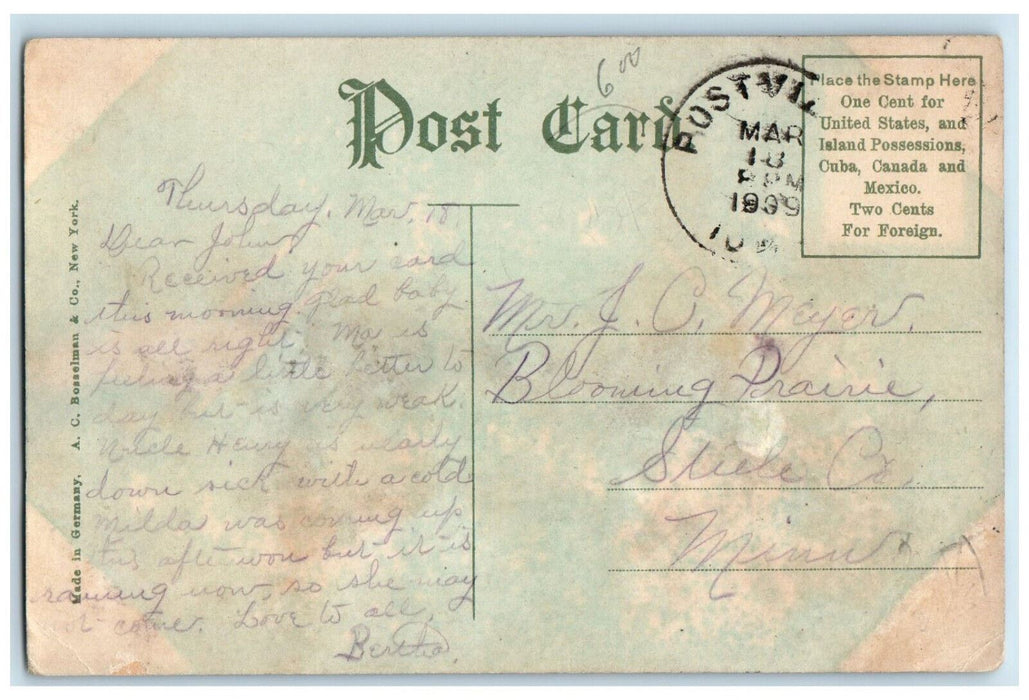 Post Card
6 00
POSTVIL
MAR
18
PM
1909
IOWA
Place the Stamp Here
One Cent for
United States, and
Island Possessions,
Cuba, Canada and
Mexico.
Two Cents
For Foreign.
Made in Germany. A. C. Bosselman & Co., New York.
Thursday, Mar. 18
Dear John
Received your card
this morning, glad baby
is all right, Ma is
feeling a little better to
day but is very weak.
Uncle Henry is nearly
down sick with a cold
Milda was coming up
this afternoon but it is
raining now, so she may
not come. Love to all,
Bertha.
Mr. J. C. Meyer,
Blooming Prairie,
Steele Co.
Minn